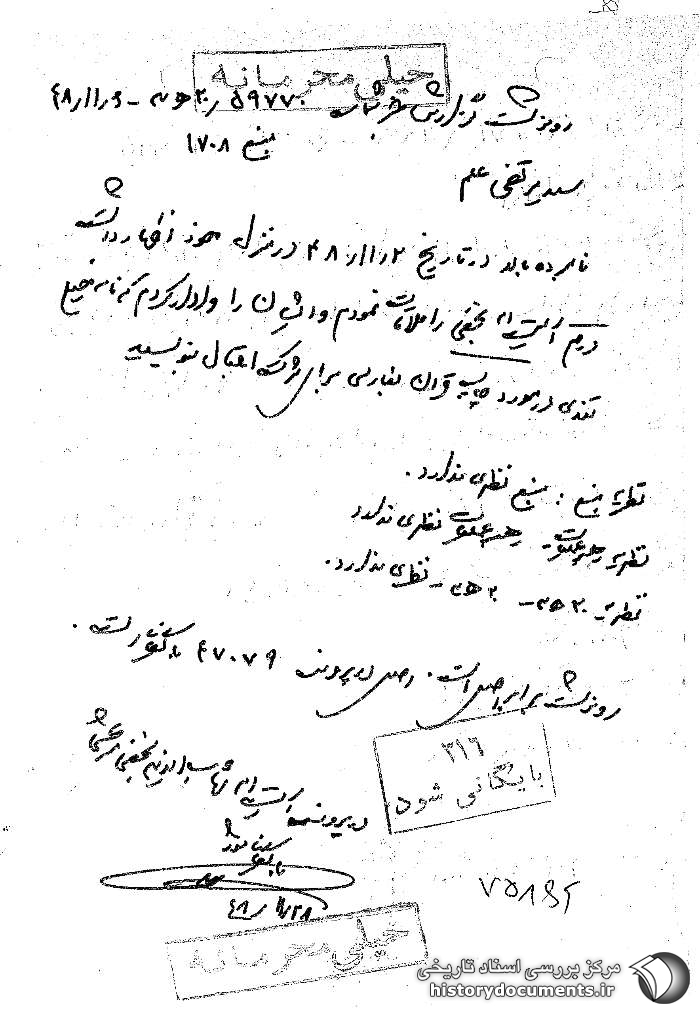 خیلی محرمانه
رونوشت گزارش خبر ۵۹۷۷۰/۲۰ه‍۳ - ۴۸/۱۱/۶
منبع ۱۷۰۸
سید مرتضی علم
نامبرده بالا در تاریخ ۴۸/۱۱/۲ در منزل خود اظهار داشت
رفتم آیت‌اله نجفی را ملاقات نمودم و ایشان را وادار کردم که نامه خیلی
تندی در مورد چاپ قرآن بفارسی برای شرکت اقبال بنویسید
نظریه منبع : منبع نظری ندارد .
نظریه رهبر عملیات - رهبر عملیات نظری ندارد
نظریه ۲۰ه‍۳ - ۲۰ه‍۳ - نظری ندارد .
رونوشت برابر اصل است . اصل در پرونده ۴۷۰۷۹ بایگانی است .
در پرونده آیت‌اله شهاب‌الدین نجفی مرعشی
۳۱۶
بایگانی شود
۴۸/۱۱/۲۸
۷۵۸۹۴
خیلی محرمانه
مرکز بررسی اسناد تاریخی
historydocuments.ir